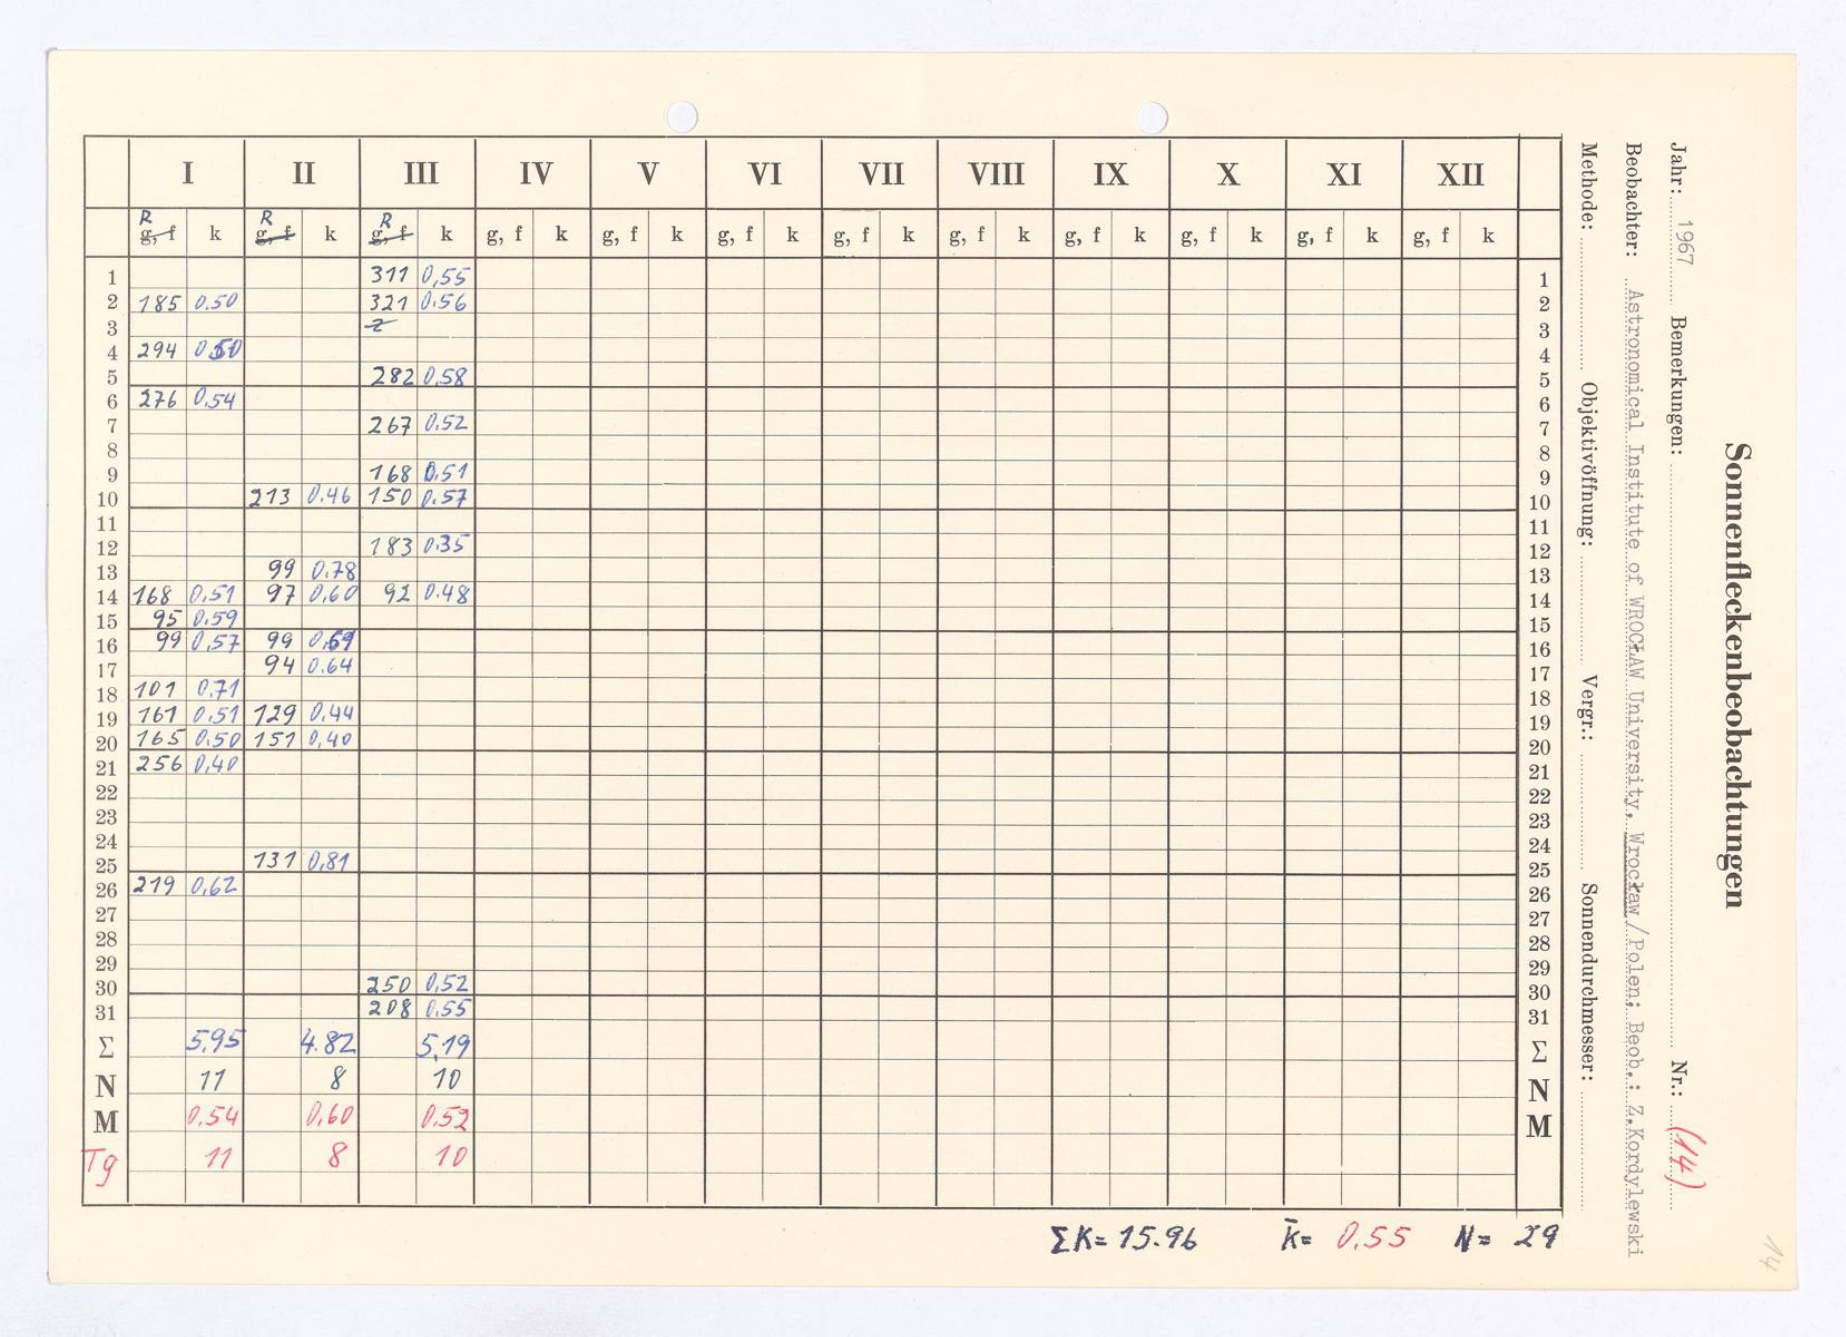 Sonnenfleckenbeobachtungen
Jahr: 1967 Bemerkungen: Nr.: (14)
Beobachter: Astronomical Institute of WROCŁAW University, Wrocław/Polen; Beob.: Z.Kordylewski
Methode: Objektivöffnung: Vergr.: Sonnendurchmesser:
I II III IV V VI VII VIII IX X XI XII
R R R
g, f k g, f k g, f k g, f k g, f k g, f k g, f k g, f k g, f k g, f k g, f k g, f k
1 311 0,55 1
2 185 0.50 321 0.56 2
3 3
4 294 0.50 4
5 282 0.58 5
6 276 0.54 6
7 267 0.52 7
8 8
9 168 0.51 9
10 213 0.46 150 0.57 10
11 11
12 183 0.35 12
13 99 0.78 13
14 168 0.51 97 0,60 92 0.48 14
15 95 0.59 15
16 99 0,57 99 16
17 94 0.64 17
18 101 0,71 18
19 161 0.51 129 0.44 19
20 165 0.50 151 0,40 20
21 256 0,40 21
22 22
23 23
24 24
25 131 0,81 25
26 219 0,62 26
27 27
28 28
29 29
30 250 0,52 30
31 208 0.55 31
Σ 5,95 4.82 5,19 Σ
N 11 8 10 N
M 0.54 0,60 0.52 M
Tg 11 8 10
ΣK= 15.96 k̄= 0.55 N= 29
14